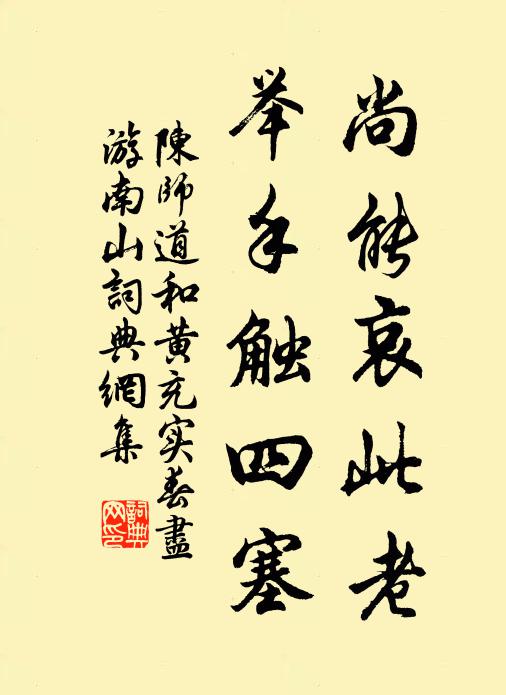 尚能哀此老
举手触四塞
陳師道和黄充实春盡
游南山詞典網集
詞典
网印